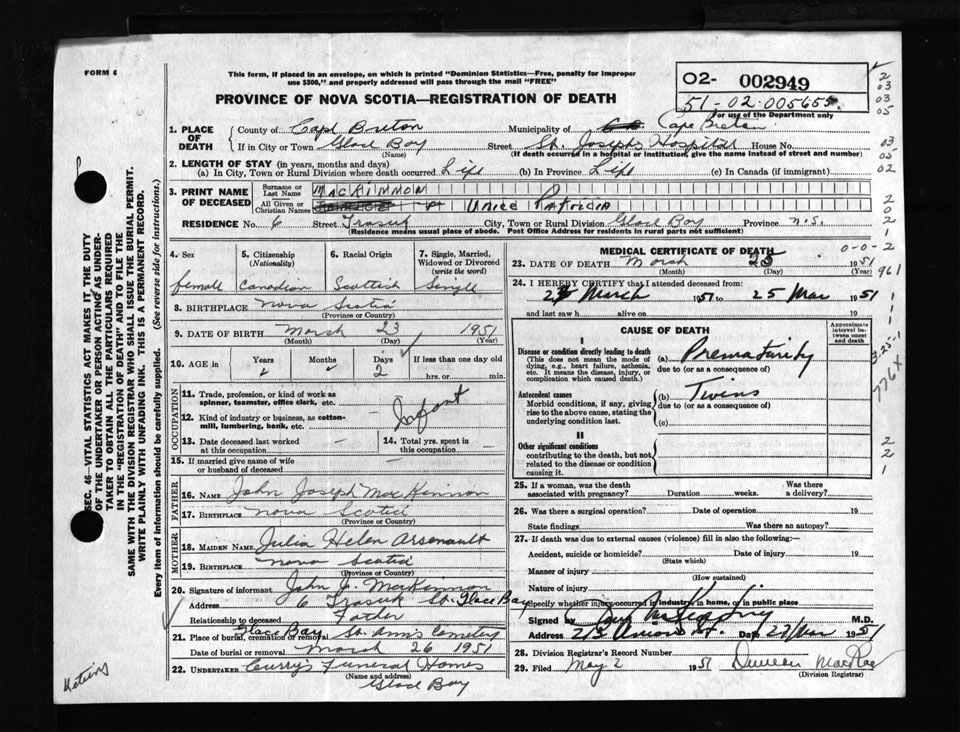 FORM 6
This form, if placed in an envelope, on which is printed "Dominion Statistics—Free, penalty for improper
use $300," and properly addressed will pass through the mail "FREE"
PROVINCE OF NOVA SCOTIA—REGISTRATION OF DEATH
02- 002949
51-02-005655
For use of the Department only
1. PLACE OF DEATH
County of Cape Breton Municipality of Cape Breton
If in City or Town Glace Bay (Name) Street St. Joseph's Hospital House No.
(If death occurred in a hospital or institution, give the name instead of street and number)
2. LENGTH OF STAY (in years, months and days)
(a) In City, Town or Rural Division where death occurred Life (b) In Province Life (c) In Canada (if immigrant)
3. PRINT NAME OF DECEASED
Surname or Last Name MACKINNON
All Given or Christian Names Patricia
RESIDENCE No. 6 Street City, Town or Rural Division Glace Bay Province N.S.
(Residence means usual place of abode. Post Office Address for residents in rural parts not sufficient)
4. Sex female
5. Citizenship (Nationality) Canadian
6. Racial Origin Scottish
7. Single, Married, Widowed or Divorced (write the word) Single
8. BIRTHPLACE Nova Scotia
(Province or Country)
9. DATE OF BIRTH March 23 1951
(Month) (Day) (Year)
10. AGE in Years Months Days 2 If less than one day old
hrs. or min.
OCCUPATION
11. Trade, profession, or kind of work as spinner, teamster, office clerk, etc. —
12. Kind of industry or business, as cotton-mill, lumbering, bank, etc. Infant
13. Date deceased last worked at this occupation —
14. Total yrs. spent in this occupation —
15. If married give name of wife or husband of deceased
FATHER
16. NAME John Joseph MacKinnon
17. BIRTHPLACE Nova Scotia
(Province or Country)
MOTHER
18. MAIDEN NAME Julia Helen Arsenault
19. BIRTHPLACE Nova Scotia
(Province or Country)
20. Signature of informant John J. MacKinnon
Address 6 St. Glace Bay
Relationship to deceased Father
21. Place of burial, cremation or removal Glace Bay St. Anns Cemetery
Date of burial or removal March 26 1951
22. UNDERTAKER Curry's Funeral Homes
(Name and address)
Glace Bay
MEDICAL CERTIFICATE OF DEATH
23. DATE OF DEATH March 25 1951
(Month) (Day) (Year)
24. I HEREBY CERTIFY that I attended deceased from:
March 1951 to 25 Mar 1951
and last saw h alive on 19
CAUSE OF DEATH
Approximate interval between onset and death
I
Disease or condition directly leading to death (a) Prematurity
(This does not mean the mode of dying, e.g., heart failure, asthenia, etc. It means the disease, injury, or complication which caused death.)
due to (or as a consequence of)
Antecedent causes (b) Twins
Morbid conditions, if any, giving rise to the above cause, stating the underlying condition last.
due to (or as a consequence of)
(c)
II
Other significant conditions
contributing to the death, but not related to the disease or condition causing it.
25. If a woman, was the death associated with pregnancy? Duration weeks. Was there a delivery?
26. Was there a surgical operation? Date of operation 19
State findings Was there an autopsy?
27. If death was due to external causes (violence) fill in also the following:—
Accident, suicide or homicide? Date of injury 19
(State which)
Manner of injury
(How sustained)
Nature of injury
Specify whether injury occurred in industry, in home, or in public place
Signed by M.D.
Address Date 27 Mar 1951
28. Division Registrar's Record Number
29. Filed May 2 1951 Duncan MacRae
(Division Registrar)
SEC. 46 VITAL STATISTICS ACT MAKES IT THE DUTY
OF THE UNDERTAKER OR PERSON ACTING AS UNDER-
TAKER TO OBTAIN ALL THE PARTICULARS REQUIRED
IN THE "REGISTRATION OF DEATH" AND TO FILE THE
SAME WITH THE DIVISION REGISTRAR WHO SHALL ISSUE THE BURIAL PERMIT.
WRITE PLAINLY WITH UNFADING INK. THIS IS A PERMANENT RECORD.
Every item of information should be carefully supplied. (See reverse side for instructions.)
2
03
03
05
03
05
02
2
0
2
1
0-0-2
961
3-25-1
776X
2
2
1